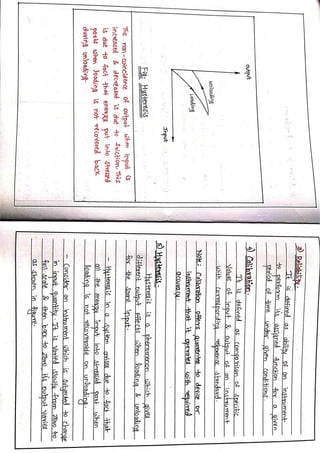 3) Reliability:-
It is defined as ability of an instrument
to perform its assigned function for a given
period of time under given conditions.
4) Calibration
It is defined as comparison of specific
values of input & output of an instrument
with corresponding reference standard
Note: Calibration offers guarantee to device or
instrument that it operates with required
accuracy.
5) Hysteresis:-
Hysteresis is a phenomenon which gives
different output effects when loading & unloading
for the same input.
- Hysteresis in a system arises due to fact that
all the energy input into stressed part when
loading is not recovered on unloading
- Consider an instrument which is subjected to change
in input quantity. It is varied slowly from zero to
full scale & then back to zero its output varies
as shown in figure.
output
unloading
Loading
Input
Fig: Hysteresis
The non-coincidence of output when input is
increased & decreased is due to friction. This
is due to fact that energy put into stressed
parts when loading is not recovered back
during unloading.